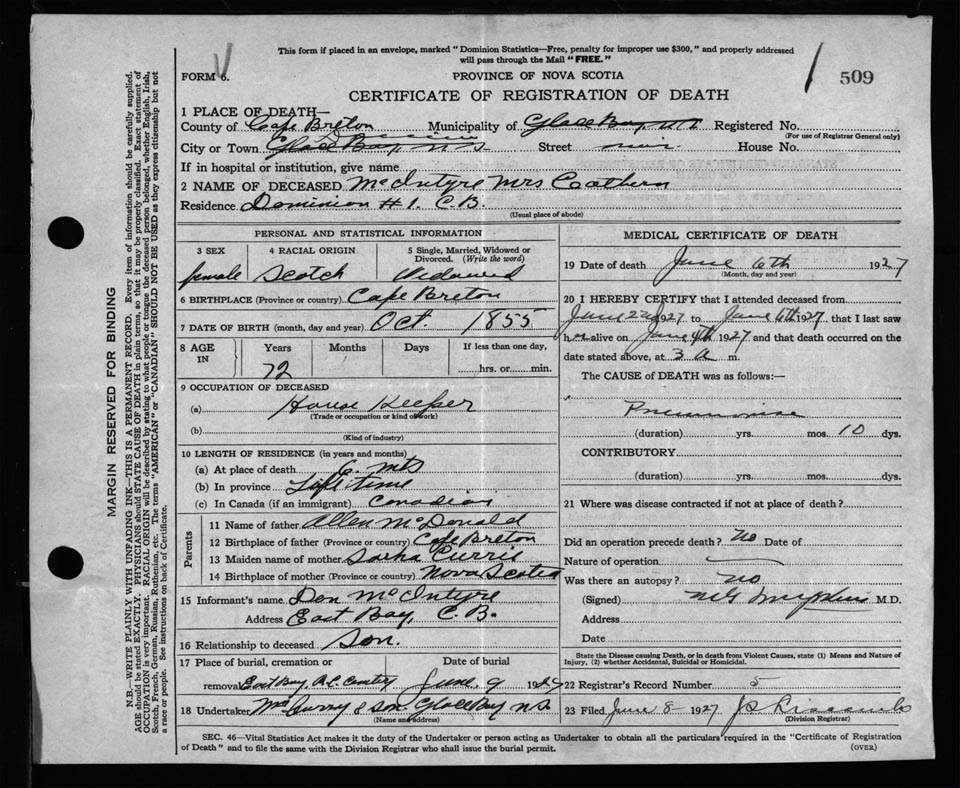 This form if placed in an envelope, marked "Dominion Statistics—Free, penalty for improper use $300," and properly addressed
will pass through the Mail "FREE."
FORM 6.
PROVINCE OF NOVA SCOTIA
509
CERTIFICATE OF REGISTRATION OF DEATH
1 PLACE OF DEATH—
County of Cape Breton Municipality of Glace Bay N S Registered No.
(For use of Registrar General only)
City or Town Glace Bay N S Street House No.
If in hospital or institution, give name
2 NAME OF DECEASED McIntyre Mrs Cathern
Residence Dominion #1. C.B.
(Usual place of abode)
PERSONAL AND STATISTICAL INFORMATION
3 SEX 4 RACIAL ORIGIN 5 Single, Married, Widowed or
Divorced. (Write the word)
female Scotch Widowed
6 BIRTHPLACE (Province or country) Cape Breton
7 DATE OF BIRTH (month, day and year) Oct. 1855
8 AGE IN Years Months Days If less than one day,
72 hrs. or min.
9 OCCUPATION OF DECEASED
(a) House Keeper
(Trade or occupation or kind of work)
(b)
(Kind of industry)
10 LENGTH OF RESIDENCE (in years and months)
(a) At place of death 6. mts
(b) In province Life time
(c) In Canada (if an immigrant) Canadian
Parents
11 Name of father Allen McDonald
12 Birthplace of father (Province or country) Cape Breton
13 Maiden name of mother Sarha Currie
14 Birthplace of mother (Province or country) Nova Scotia
15 Informant's name Dan McIntyre
Address East Bay, C.B.
16 Relationship to deceased Son.
17 Place of burial, cremation or Date of burial
removal East Bay R.C. June 9 1927
18 Undertaker Curry & Son Glace Bay N.S.
(Name and address)
MEDICAL CERTIFICATE OF DEATH
19 Date of death June 6th 1927
(Month, day and year)
20 I HEREBY CERTIFY that I attended deceased from
1927 to June 1927, that I last saw
h alive on June 4th 1927 and that death occurred on the
date stated above, at 3 a m.
The CAUSE of DEATH was as follows:—
Pneumonia
(duration) yrs. mos. 10 dys.
CONTRIBUTORY
(duration) yrs. mos. dys.
21 Where was disease contracted if not at place of death?
Did an operation precede death? No Date of
Nature of operation
Was there an autopsy? no
(Signed) M D.
Address
Date
State the Disease causing Death, or in death from Violent Causes, state (1) Means and Nature of
Injury, (2) whether Accidental, Suicidal or Homicidal.
22 Registrar's Record Number 5
23 Filed June 8 - 1927
(Division Registrar)
SEC. 46—Vital Statistics Act makes it the duty of the Undertaker or person acting as Undertaker to obtain all the particulars required in the "Certificate of Registration
of Death" and to file the same with the Division Registrar who shall issue the burial permit.
(OVER)
MARGIN RESERVED FOR BINDING
N.B.—WRITE PLAINLY WITH UNFADING INK—THIS IS A PERMANENT RECORD. Every item of information should be carefully supplied.
AGE should be stated EXACTLY. PHYSICIANS should STATE CAUSE OF DEATH in plain terms, so that it may be properly classified. Exact statement of
OCCUPATION is very important. RACIAL ORIGIN will be described by stating to what people or tongue the deceased person belonged, whether English, Irish,
Scotch, French, German, Russian, Ruthenian, etc. The terms "AMERICAN" or "CANADIAN" SHOULD NOT BE USED as they express citizenship but not
a race or people. See instructions on back of Certificate.